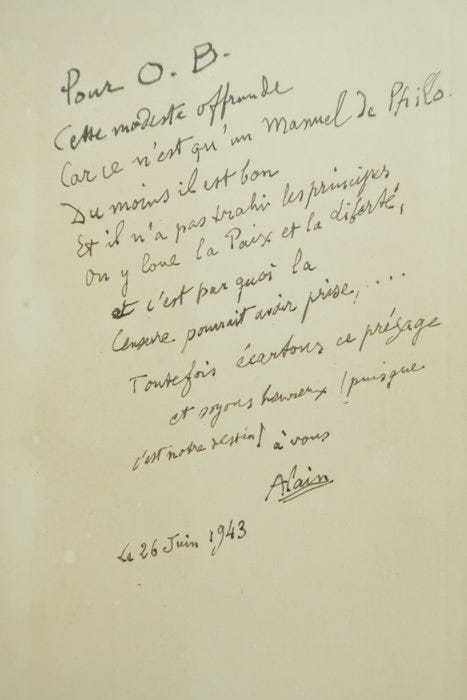 Pour O. B.
Cette modeste offrande
Car ce n'est qu'un Manuel de Philo.
Du moins il est bon
Et il n'a pas trahi les principes
On y loue la Paix et la liberté,
et c'est par quoi la
Censure pourrait avoir prise, ...
Toutefois écartons ce présage
et soyons heureux (puisque
c'est notre destin) à vous
Alain
Le 26 Juin 1943